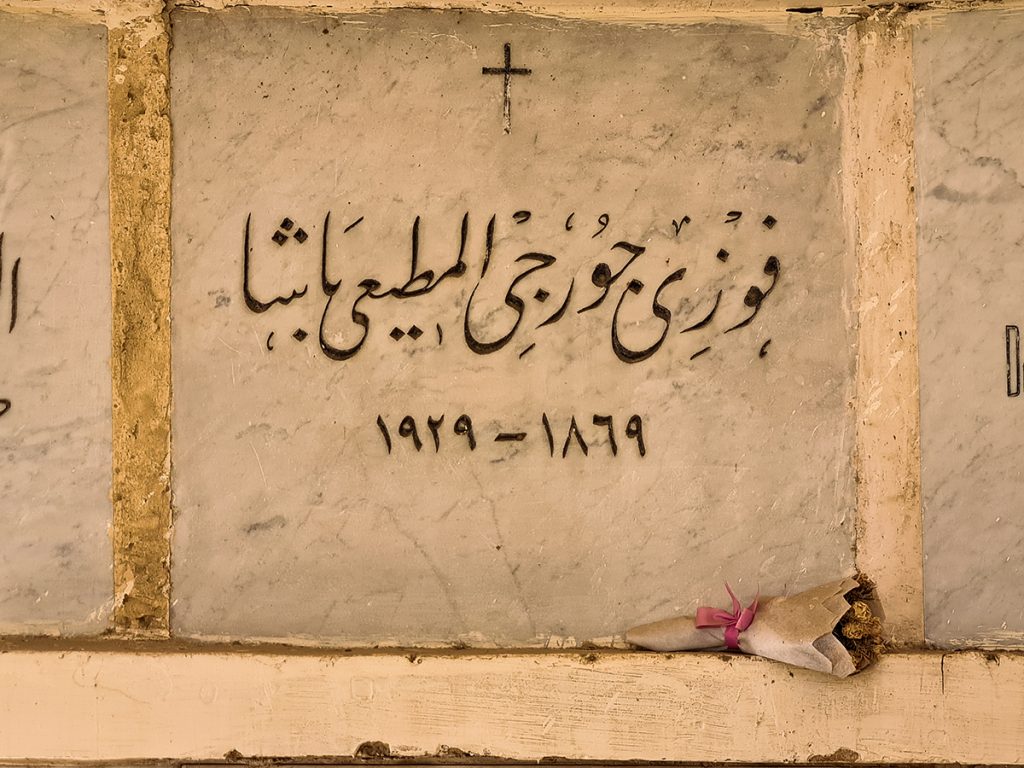 فوزى جورجى المطيعى باشا
١٨٦٩ - ١٩٢٩